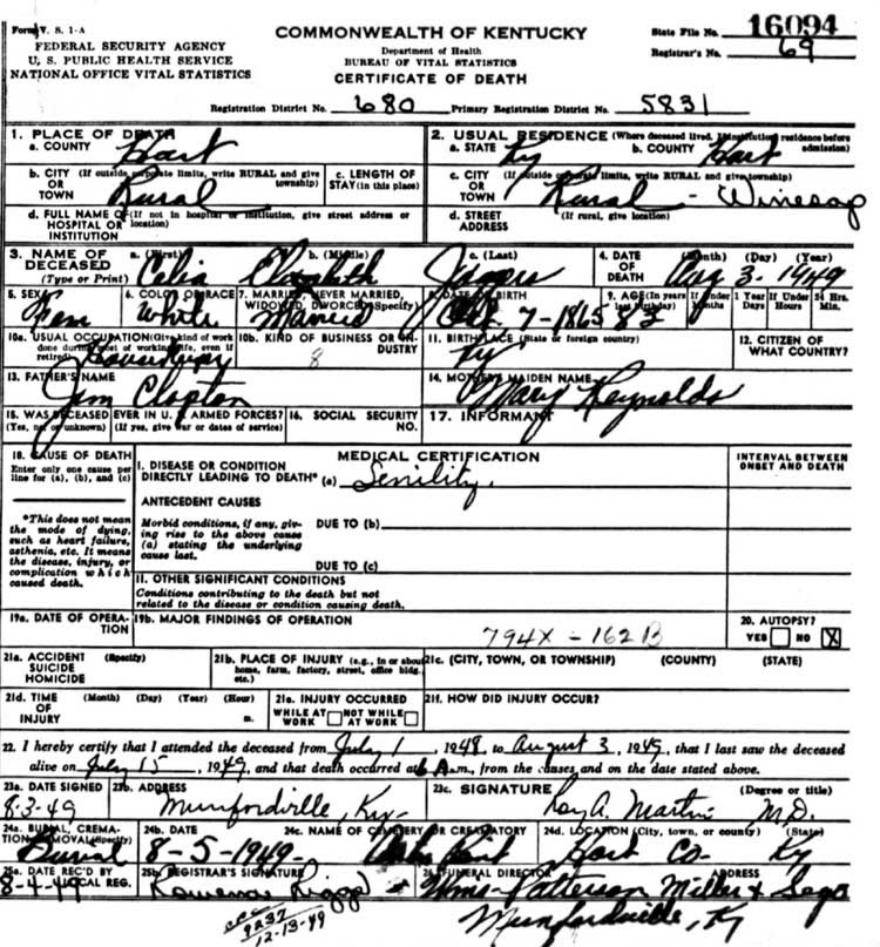 Form V. S. 1-A
FEDERAL SECURITY AGENCY
U. S. PUBLIC HEALTH SERVICE
NATIONAL OFFICE VITAL STATISTICS
COMMONWEALTH OF KENTUCKY
Department of Health
BUREAU OF VITAL STATISTICS
CERTIFICATE OF DEATH
State File No. 16094
Registrar's No. 69
Registration District No. 680 Primary Registration District No. 5831
1. PLACE OF DEATH
a. COUNTY Hart
2. USUAL RESIDENCE (Where deceased lived. If institution: residence before admission)
a. STATE Ky b. COUNTY Hart
b. CITY (If outside corporate limits, write RURAL and give township) OR TOWN Rural
c. LENGTH OF STAY (in this place)
c. CITY (If outside corporate limits, write RURAL and give township) OR TOWN Rural - Winesap
d. FULL NAME OF (If not in hospital or institution, give street address or location) HOSPITAL OR INSTITUTION
d. STREET ADDRESS (If rural, give location)
3. NAME OF DECEASED (Type or Print) a. (First) Celia b. (Middle) Elizabeth c. (Last) Jaggers
4. DATE OF DEATH (Month) (Day) (Year) Aug 3 - 1949
5. SEX Fem
6. COLOR OR RACE White
7. MARRIED, NEVER MARRIED, WIDOWED, DIVORCED (Specify) Married
8. DATE OF BIRTH 7 - 1865
9. AGE (In years last birthday) 83 If Under 1 Year Months Days If Under 24 Hrs. Hours Min.
10a. USUAL OCCUPATION (Give kind of work done during most of working life, even if retired) Housekeeper
10b. KIND OF BUSINESS OR INDUSTRY 8
11. BIRTHPLACE (State or foreign country) Ky
12. CITIZEN OF WHAT COUNTRY?
13. FATHER'S NAME Jim Clopton
14. MOTHER'S MAIDEN NAME Mary Reynolds
15. WAS DECEASED EVER IN U. S. ARMED FORCES? (Yes, no, or unknown) (If yes, give war or dates of service)
16. SOCIAL SECURITY NO.
17. INFORMANT
18. CAUSE OF DEATH
Enter only one cause per line for (a), (b), and (c)
MEDICAL CERTIFICATION
INTERVAL BETWEEN ONSET AND DEATH
I. DISEASE OR CONDITION DIRECTLY LEADING TO DEATH* (a) Senility.
ANTECEDENT CAUSES
*This does not mean the mode of dying, such as heart failure, asthenia, etc. It means the disease, injury, or complication which caused death.
Morbid conditions, if any, giving rise to the above cause (a) stating the underlying cause last.
DUE TO (b)
DUE TO (c)
II. OTHER SIGNIFICANT CONDITIONS
Conditions contributing to the death but not related to the disease or condition causing death.
19a. DATE OF OPERATION
19b. MAJOR FINDINGS OF OPERATION
794X - 162B
20. AUTOPSY?
YES NO X
21a. ACCIDENT SUICIDE HOMICIDE (Specify)
21b. PLACE OF INJURY (e.g., in or about home, farm, factory, street, office bldg., etc.)
21c. (CITY, TOWN, OR TOWNSHIP) (COUNTY) (STATE)
21d. TIME OF INJURY (Month) (Day) (Year) (Hour) m.
21e. INJURY OCCURRED WHILE AT WORK NOT WHILE AT WORK
21f. HOW DID INJURY OCCUR?
22. I hereby certify that I attended the deceased from July 1, 1948, to August 3, 1949, that I last saw the deceased
alive on July 15, 1949, and that death occurred at 6 A.m., from the causes and on the date stated above.
23a. DATE SIGNED 8-3-49
23b. ADDRESS Munfordville, Ky-
23c. SIGNATURE (Degree or title) Roy A. Martin M.D.
24a. BURIAL, CREMATION, REMOVAL (Specify) Burial
24b. DATE 8-5-1949-
24c. NAME OF CEMETERY OR CREMATORY
24d. LOCATION (City, town, or county) (State) Hart Co- Ky
25a. DATE REC'D BY LOCAL REG. 8-4-49
25b. REGISTRAR'S SIGNATURE
26. FUNERAL DIRECTOR ADDRESS
Patterson Miller & Sego
Munfordville, Ky
9237
12-13-49